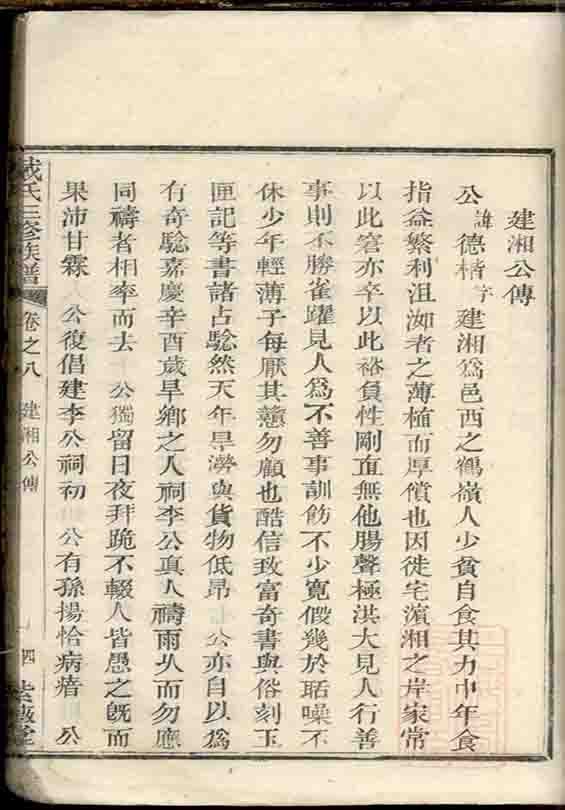 建湘公傳
公諱德楷字建湘爲邑西之鶴嶺人少貧自食其力中年食
指益繁利沮洳者之薄植而厚償也因徙宅濱湘之岸家常
以此窘亦卒以此裕負性剛直無他腸聲極洪大見人行善
事則不勝雀躍見人爲不善事訓飭不少寬假幾於聒噪不
休少年輕薄子每厭其戇勿顧也酷信致富奇書與俗刻玉
匣記等書諸占驗然天年旱澇與貨物低昂公亦自以爲
有奇驗嘉慶辛酉歲旱鄉之人祠李公眞人禱雨乆而勿應
同禱者相率而去公獨留日夜拜跪不輟人皆愚之旣而
果沛甘霖公復倡建李公祠初公有孫揚恰病瘄公
戴氏三修族譜 卷之八 建湘公傳 四